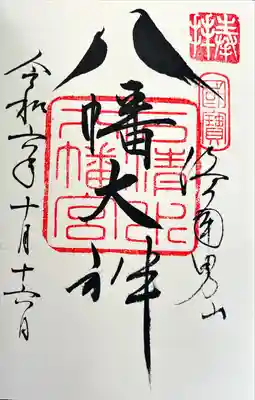 奉拝
國寶
男山
八幡大神
石清水八幡宮
令和六年十月十六日